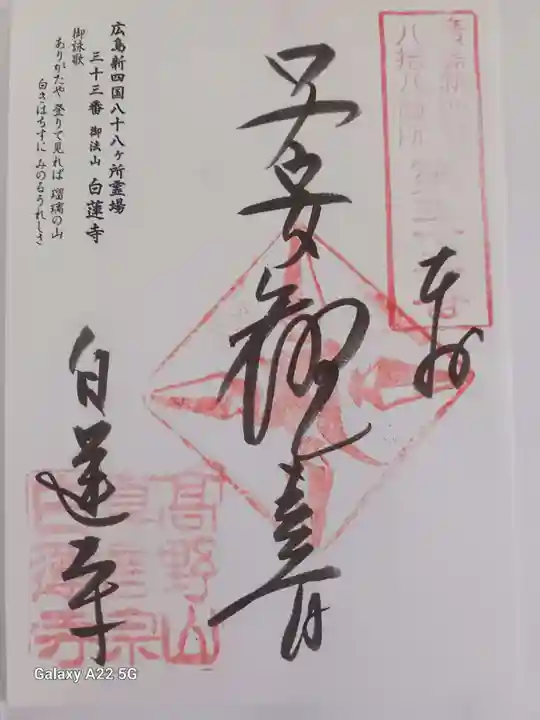 奉拝
子安御影
白蓮寺
高野山
真言宗
白蓮寺
広島新四国八十八ヶ所霊場
三十三番 御法山 白蓮寺
御詠歌
ありがたや 登りて見れば 瑠璃の山
白きはちすに みのるうれしさ
Galaxy A22 5G